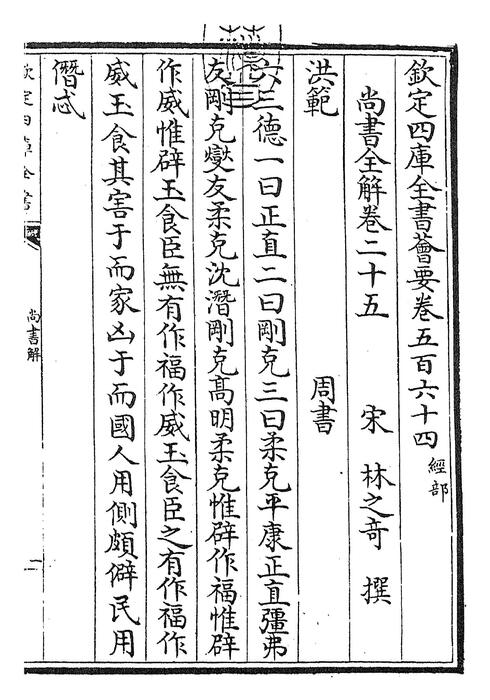 欽定四庫全書薈要卷五百六十四 經部
尚書全解卷二十五 宋 林之奇 撰
洪範 周書
六三德一曰正直二曰剛克三曰柔克平康正直彊弗
友剛克燮友柔克沈潛剛克髙明柔克惟辟作福惟辟
作威惟辟玉食臣無有作福作威玉食臣之有作福作
威玉食其害于而家凶于而國人用側頗僻民用
僭忒
欽定四庫全書
尚書解
一